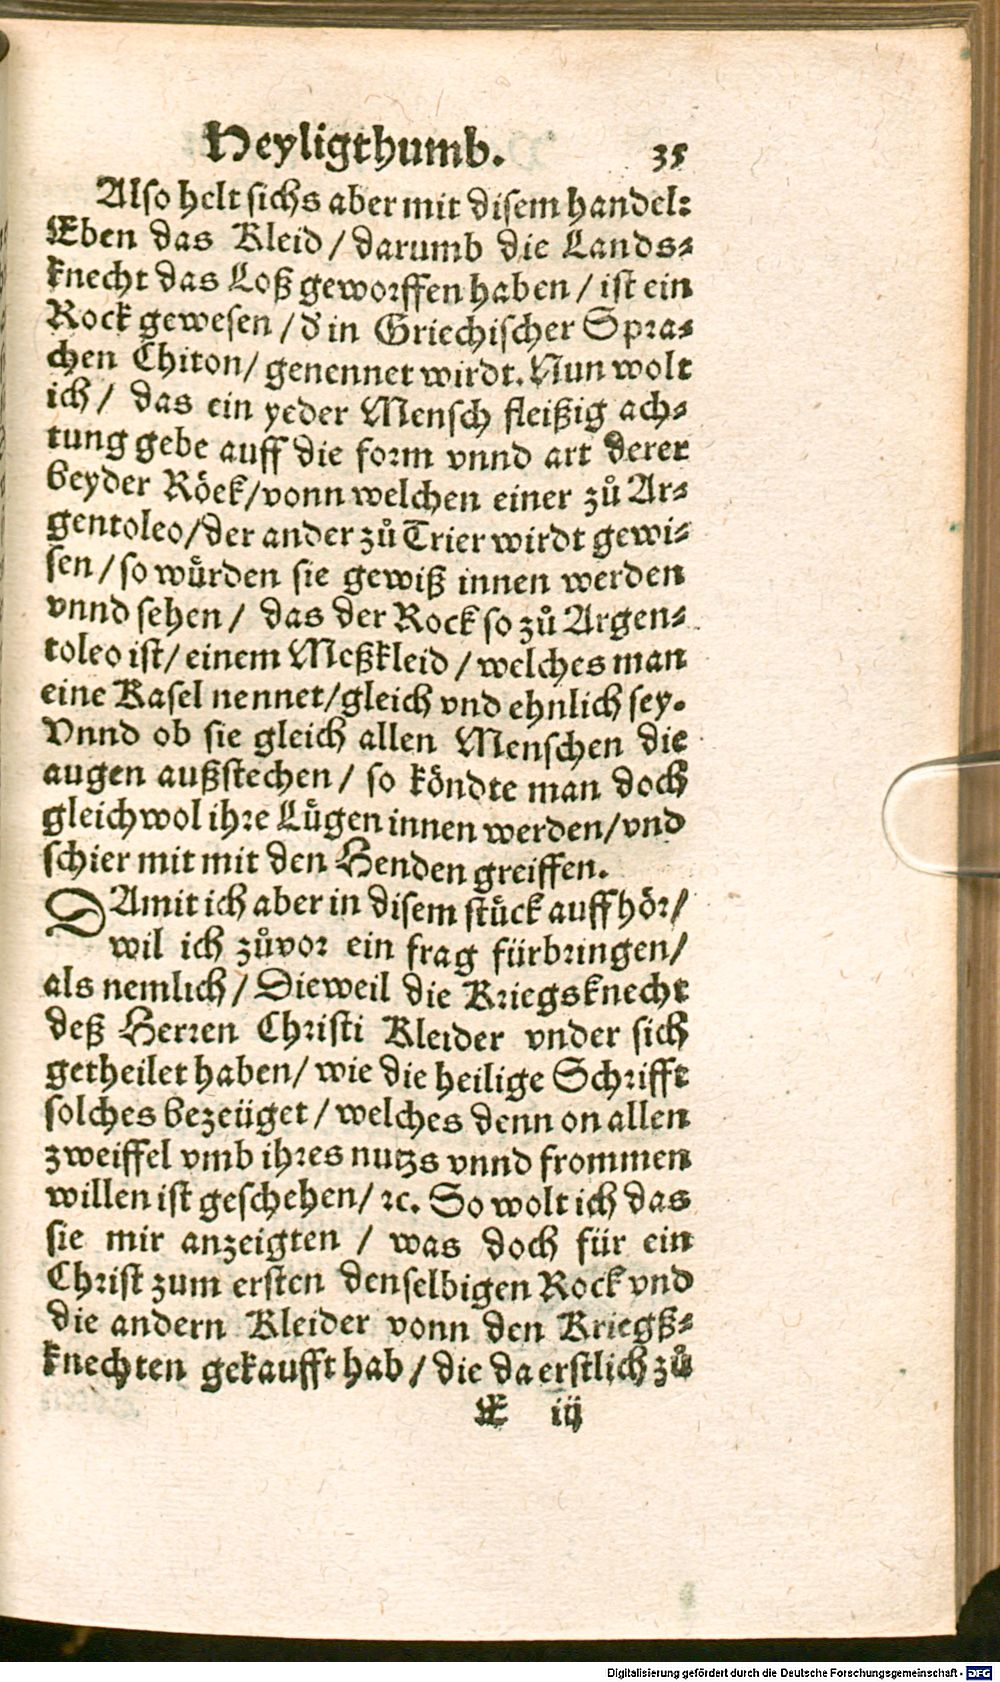 Heyligthumb. 35
Also helt sichs aber mit disem handel:
Eben das Kleid / darumb die Lands⸗
knecht das Loß geworffen haben / ist ein
Rock gewesen / d' in Griechischer Spra⸗
chen Chiton / genennet wirdt. Nun wolt
ich / das ein yeder Mensch fleißig ach⸗
tung gebe auff die form vnnd art derer
beyder Röek / vonn welchen einer zů Ar⸗
gentoleo / der ander zů Trier wirdt gewi⸗
sen / so würden sie gewiß innen werden
vnnd sehen / das der Rock so zů Argen⸗
toleo ist / einem Meßkleid / welches man
eine Kasel nennet / gleich vnd ehnlich sey.
Vnnd ob sie gleich allen Menschen die
augen außstechen / so köndte man doch
gleichwol ihre Lügen innen werden / vnd
schier mit mit den Henden greiffen.
DAmit ich aber in disem stück auffhör /
wil ich zůvor ein frag fürbringen /
als nemlich / Dieweil die Kriegsknecht
deß Herren Christi Kleider vnder sich
getheilet haben / wie die heilige Schrifft
solches bezeüget / welches denn on allen
zweiffel vmb ihres nutzs vnnd frommen
willen ist geschehen / ꝛc. So wolt ich das
sie mir anzeigten / was doch für ein
Christ zum ersten denselbigen Rock vnd
die andern Kleider vonn den Kriegß⸗
knechten gekaufft hab / die da erstlich zů
E iij
Digitalisierung gefördert durch die Deutsche Forschungsgemeinschaft - DFG